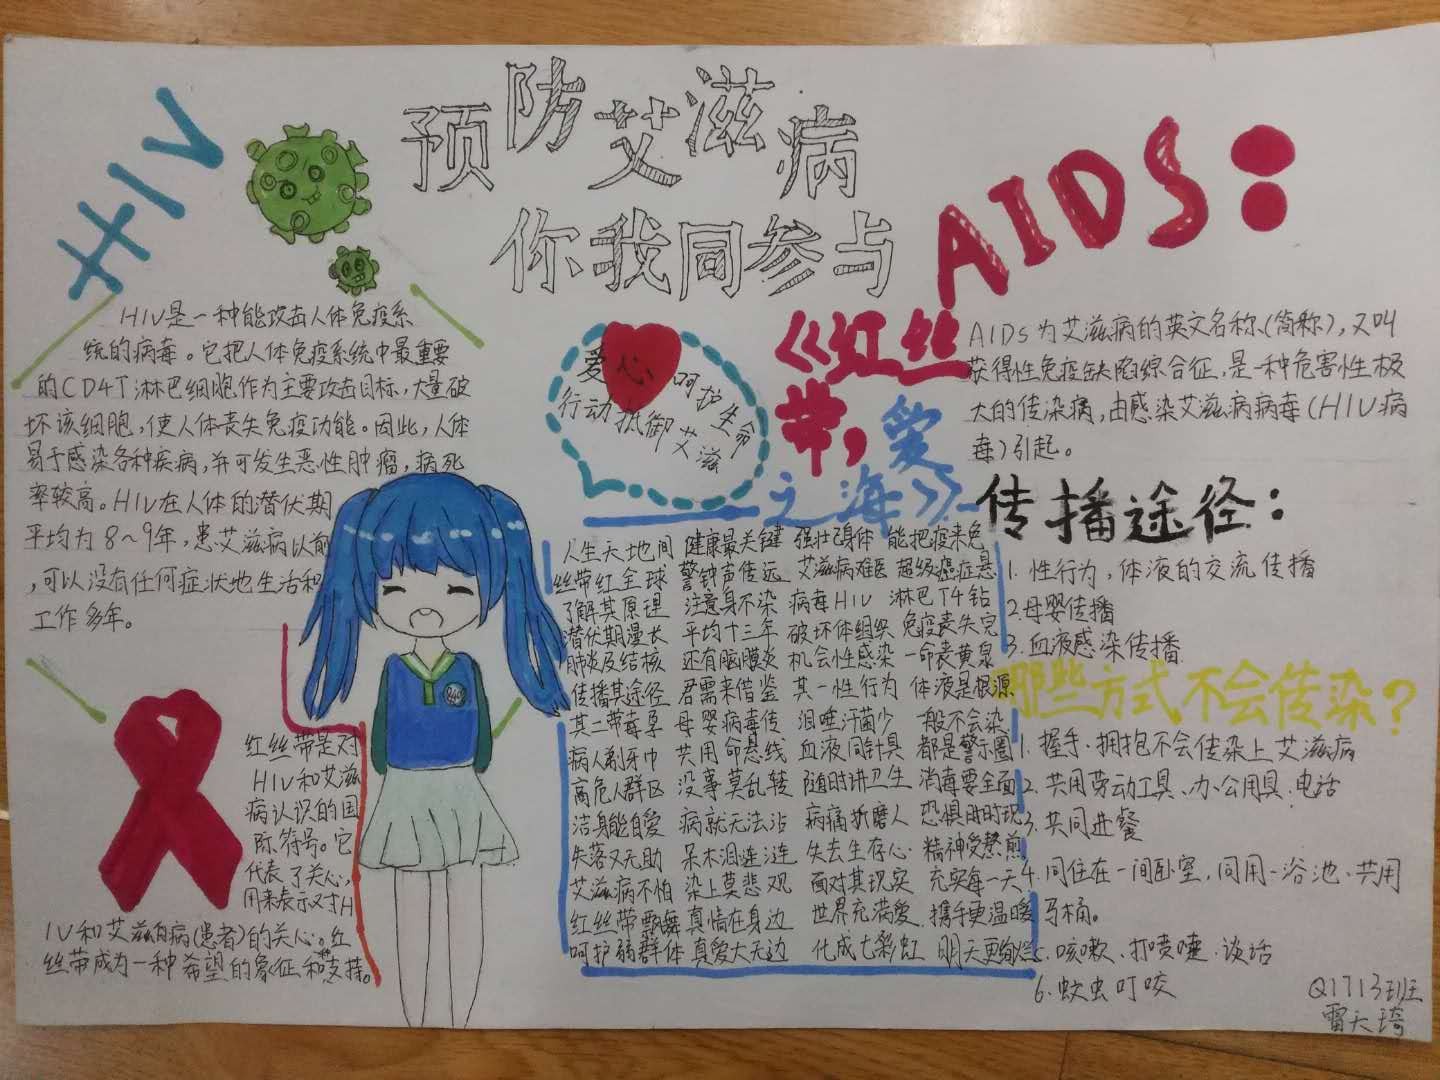 预防艾滋病
你我同参与
HIV
HIV是一种能攻击人体免疫系
统的病毒。它把人体免疫系统中最重要
的CD4T淋巴细胞作为主要攻击目标,大量破
坏该细胞,使人体丧失免疫功能。因此,人体
易于感染各种疾病,并可发生恶性肿瘤,病死
率较高。HIV在人体的潜伏期
平均为8~9年,患艾滋病以前
,可以没有任何症状地生活和
工作多年。
红丝带是对
HIV和艾滋
病认识的国
际符号。它
代表了关心,
用来表示对H
IV和艾滋病(患者)的关心。红
丝带成为一种希望的象征和支持。
爱心 呵护生命
行动抵御艾滋
《红丝
带,爱
之海》
人生天地间 健康最关键 强壮己身体 能把疫来免
丝带红全球 警钟声传远 艾滋病难医 超级癌症悬
了解其原理 注意身不染 病毒HIV 淋巴T4钻
潜伏期漫长 平均十三年 破坏体组织 免疫丧失完
肺炎及结核 还有脑膜炎 机会性感染 一命丧黄泉
传播其途径 君需来借鉴 其一性行为 体液是根源
其二带毒孕 母婴病毒传 泪唾汗菌少 一般不会染
病人剃牙巾 共用命悬线 血液同针具 都是警示圈
高危人群区 没事莫乱转 随时讲卫生 消毒要全面
洁身能自爱 病就无法沾 病痛折磨人 恐惧时时现
失落又无助 呆木泪连涟 失去生存心 精神受熬煎
艾滋病不怕 染上莫悲观 面对其现实 充实每一天
红丝带飘舞 真情在身边 世界充满爱 携手更温暖
呵护弱群体 真爱大无边 化成七彩虹 明天更绚烂
AIDS:
AIDS为艾滋病的英文名称(简称),又叫
获得性免疫缺陷综合征,是一种危害性极
大的传染病,由感染艾滋病病毒(HIV病
毒)引起。
传播途径:
1. 性行为,体液的交流传播
2.母婴传播
3.血液感染传播
那些方式不会传染?
1. 握手、拥抱不会传染上艾滋病
2. 共用劳动工具、办公用具、电话
3. 共同进餐
4. 同住在一间卧室,同用一浴池、共用
马桶。
5. 咳嗽、打喷嚏、谈话
6. 蚊虫叮咬
Q1713班
雷天琦